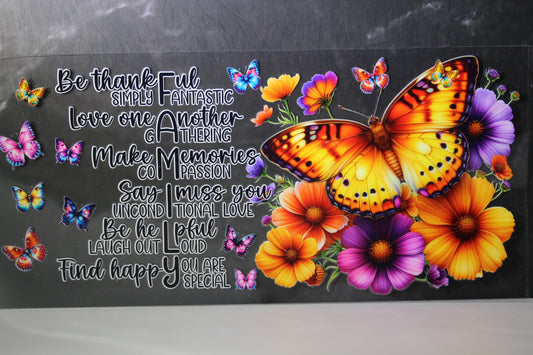 Be thankFul
SIMPLY FANTASTIC
Love one Another
GATHERING
Make Memories
COMPASSION
Say I miss you
UNCONDITIONAL LOVE
Be heLpful
LAUGH OUT LOUD
Find happY
YOU ARE
SPECIAL